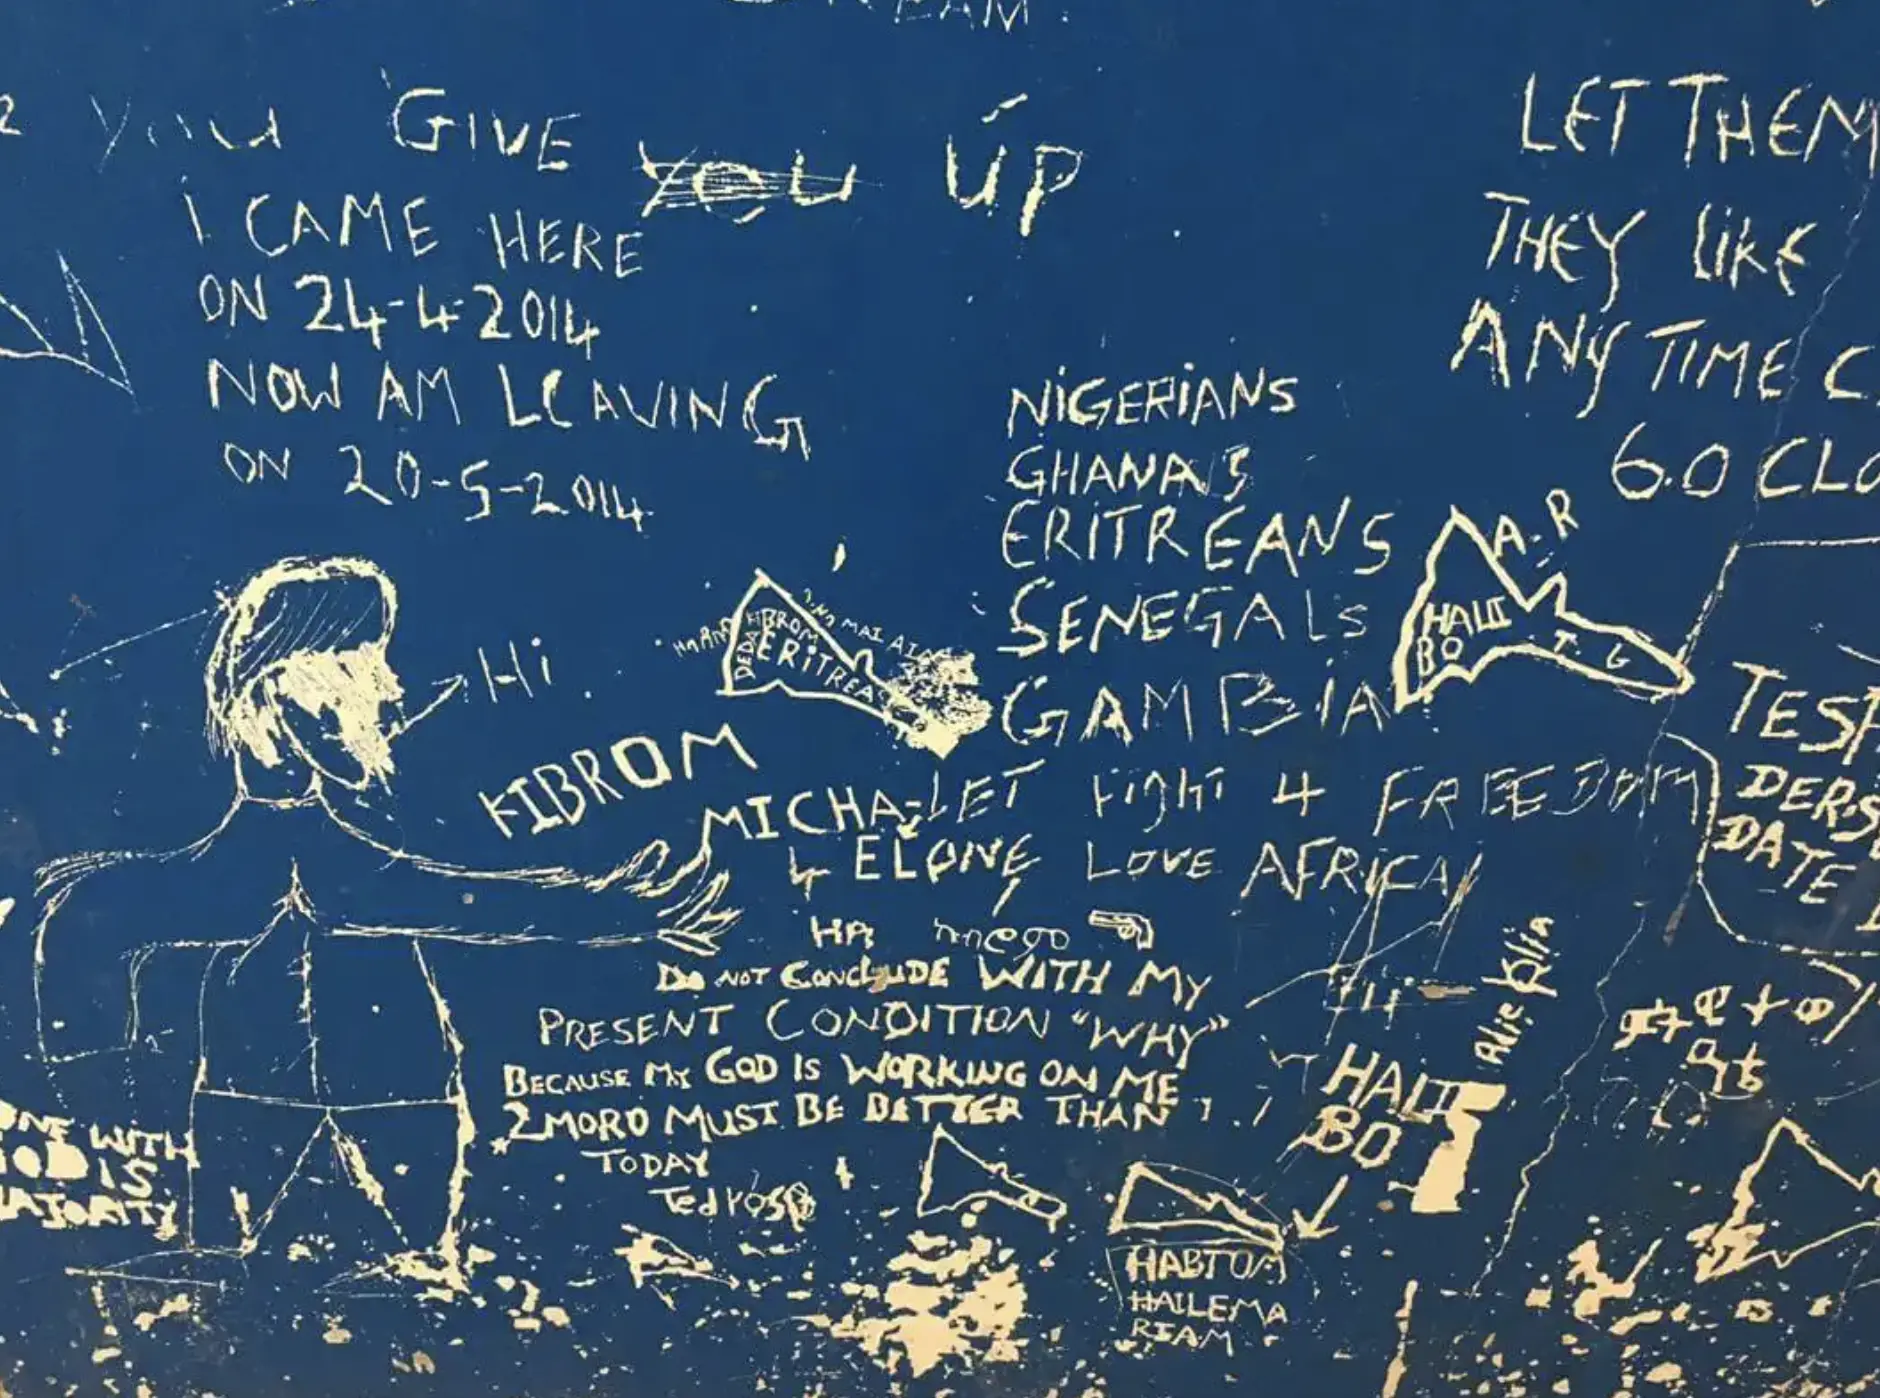 EAM.
you GIVE you UP
I CAME HERE
ON 24-4-2014
NOW AM LEAVING
ON 20-5-2014
LET THEM
THEY LiKE
ANY TIME C
6.0 CLO
NiGERiANS
GHANA'S
ERiTREANS
SENEGALS
GAMBiA
LET FighT 4 FREEDOM
LOVE AFRICA
A.R
HALII
BO
T. G
KIBROM
ERiTREA
DEDA
MAI AINI
Hi
KIBROM
MICHA
ELONE
HA
DO NOT CONCLUDE WITH MY
PRESENT CONDITION "WHY"
BECAUSE MY GOD IS WORKING ON ME
2MORO MUST BE BETTER THAN
TODAY
TedRos
ONE WITH
GOD IS
MAJORITY
HALII
BO
HABTOM
HAILEMA
RIAM
TESF
DERiS
DATE